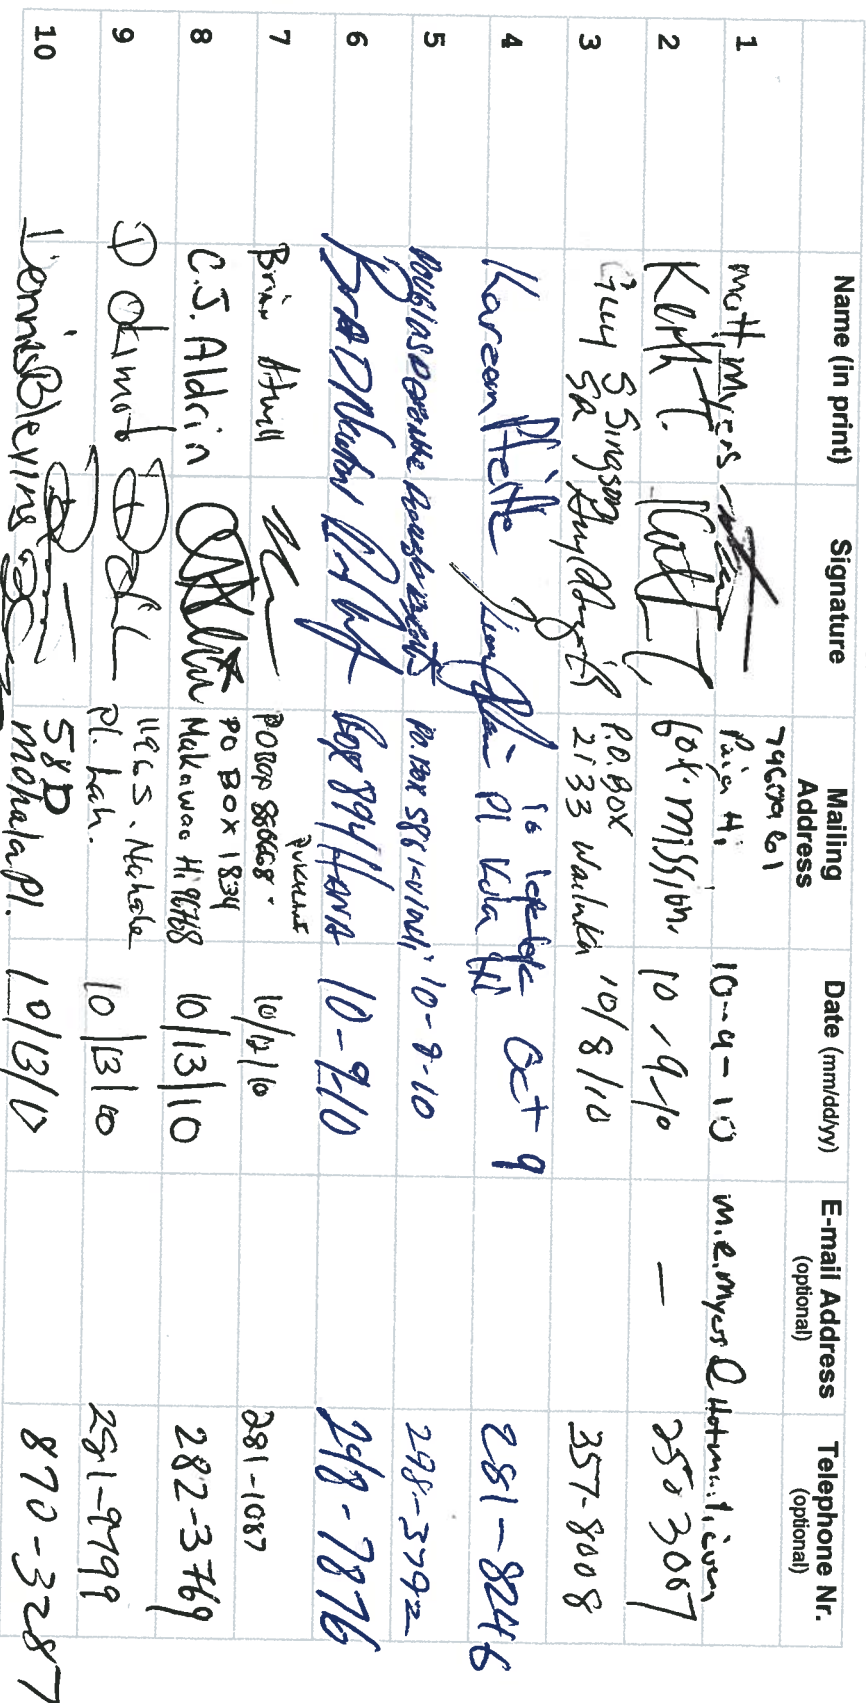 Name (in print) Signature Mailing Address Date (mm/dd/yy) E-mail Address (optional) Telephone Nr. (optional)
1 Matt Myers Paia Hi 10-9-10 m.r.myers@hotmail.com
2 Keith T. 10-9-10 — 250 3007
3 Guy S Singsong SR P.O. BOX 2133 Wailuku 10/8/10 357-8008
4 Kareem Pl Kula Hi Oct 9 281-8246
5 Douglas P.O. Box 586 10-9-10 298-3792
6 BRAD Newton Box 894 HANA 10-9-10 248-7876
7 Brian Atwill PO Box Pukalani 10/12/10 281-1087
8 C.J. Aldrin PO BOX 1834 Makawao Hi 96768 10/13/10 282-3769
9 D Pl. Lah. 10/13/10 281-9799
10 Dennis Blevins 58D Mohala Pl. 10/13/10 870-3287